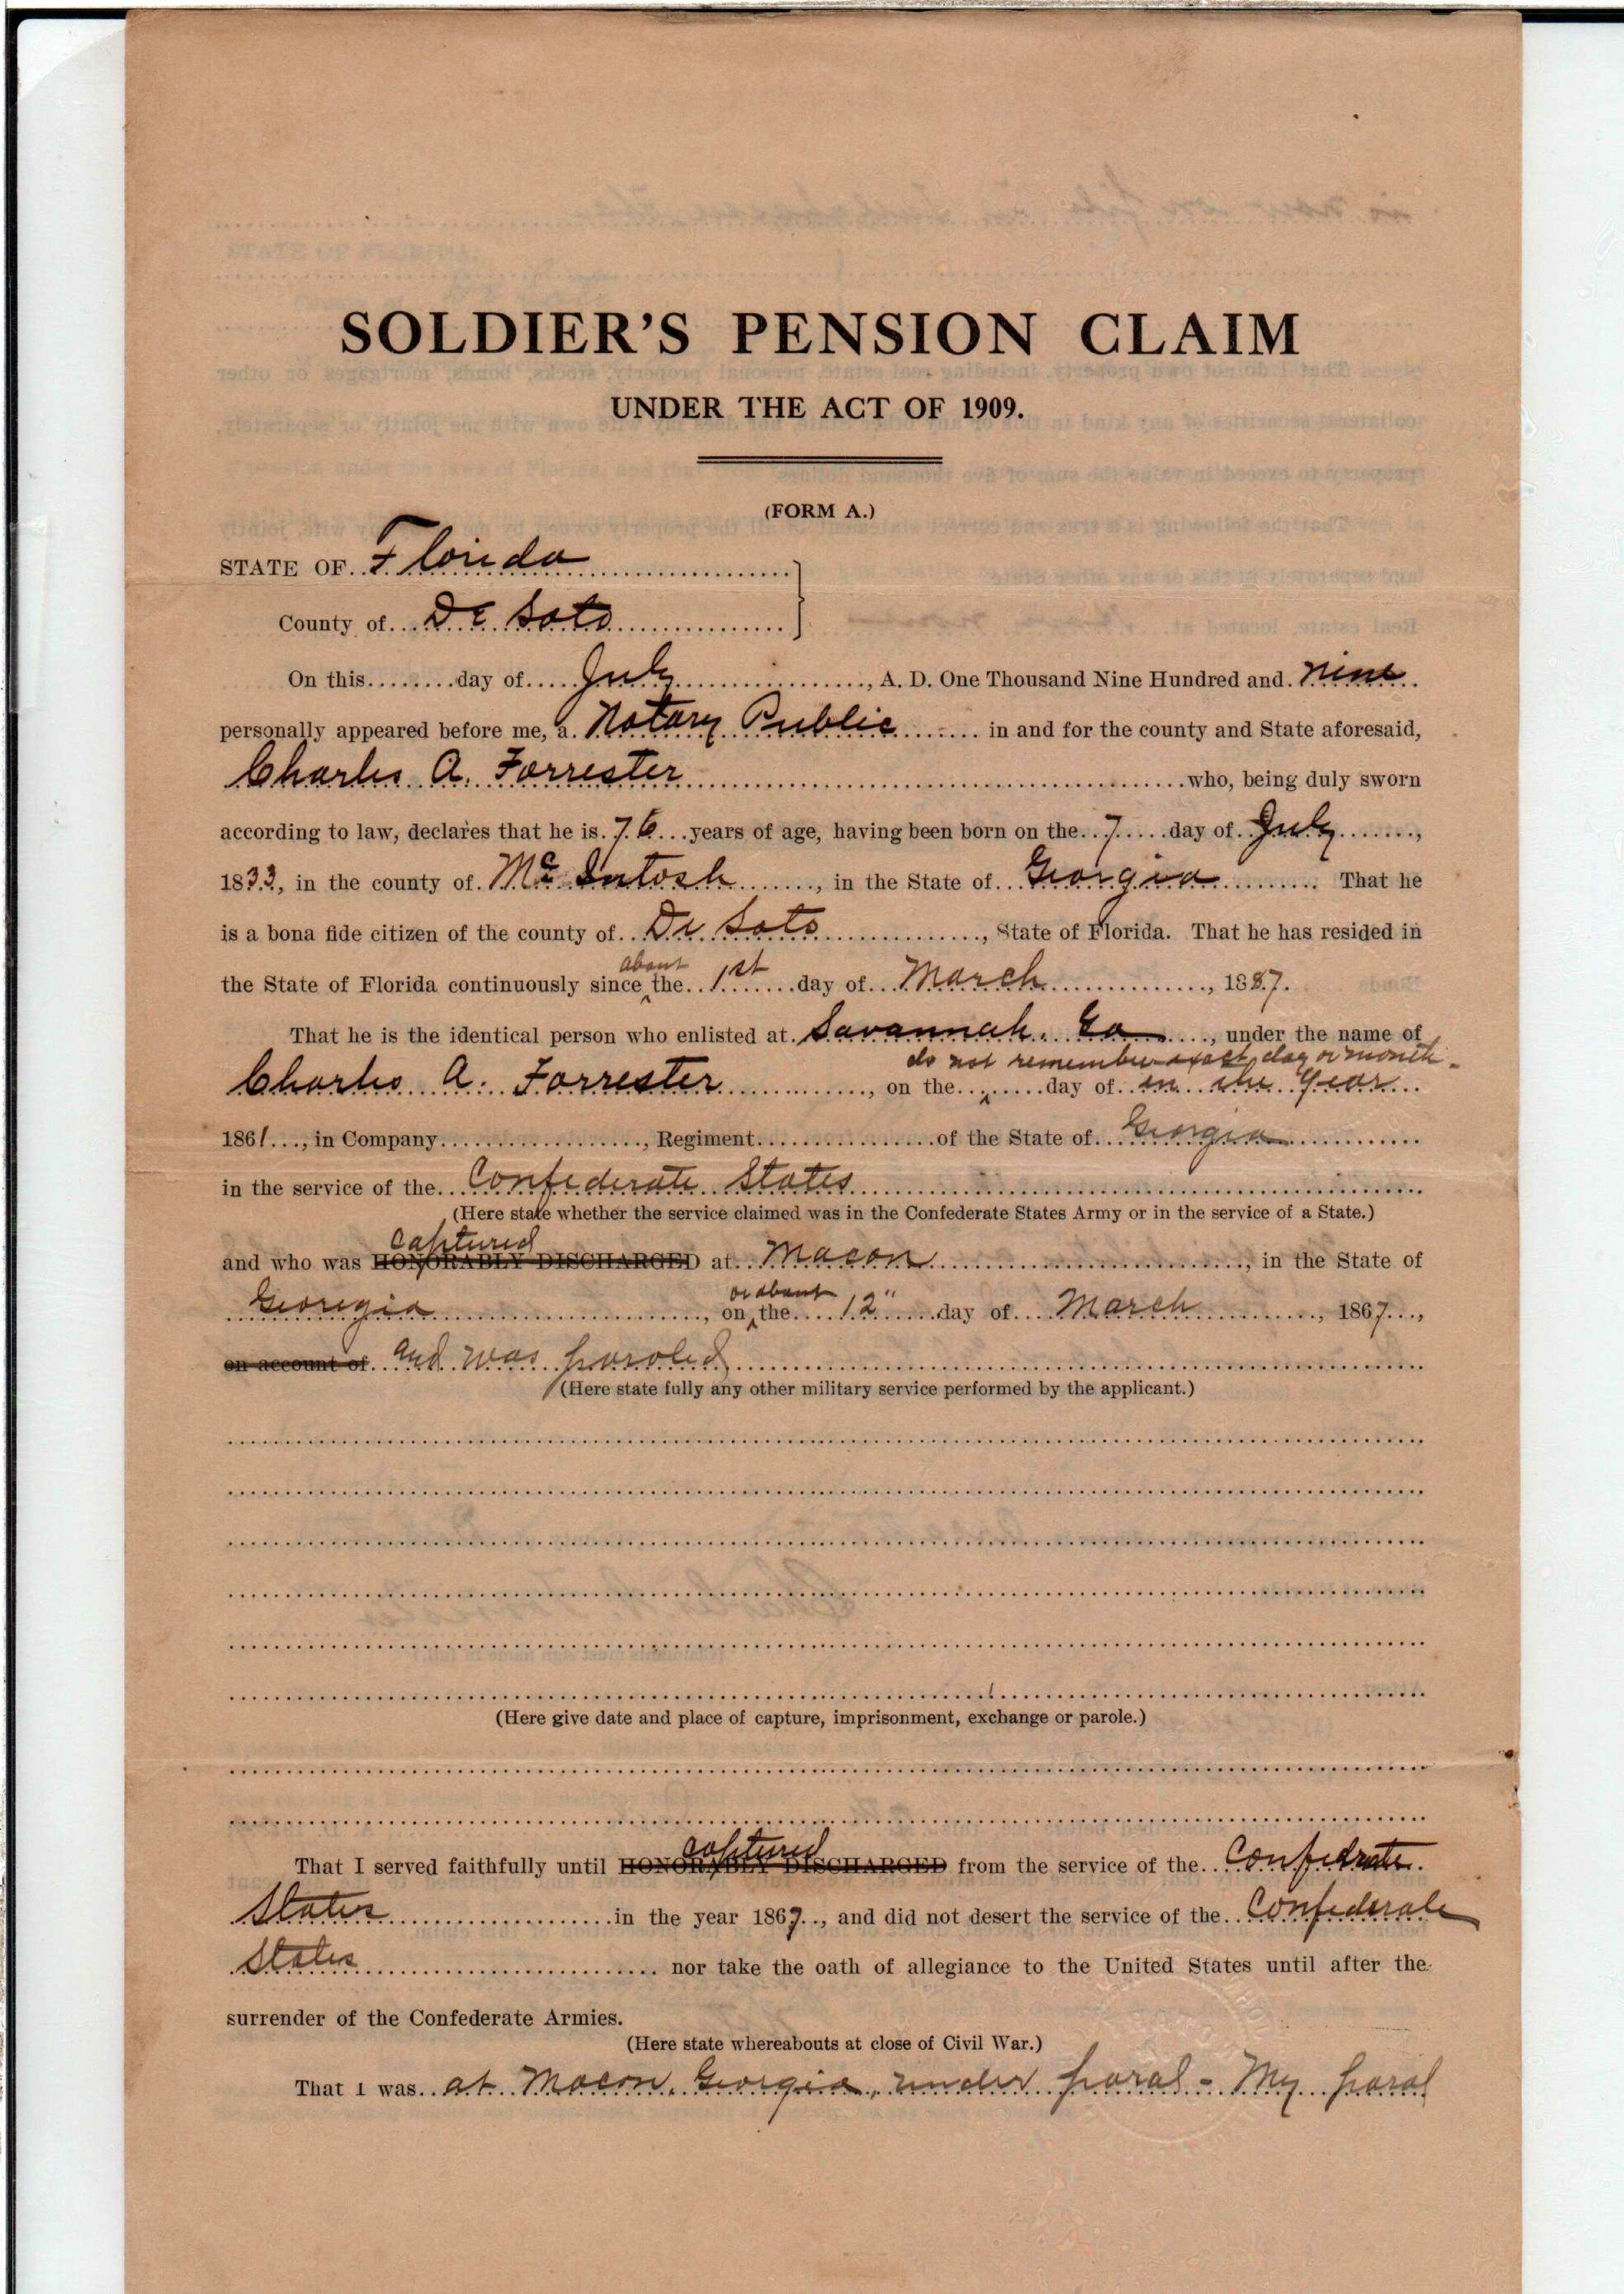 SOLDIER'S PENSION CLAIM
UNDER THE ACT OF 1909.
(FORM A.)
STATE OF Florida
County of De Soto
On this........day of July, A. D. One Thousand Nine Hundred and nine
personally appeared before me, a Notary Public in and for the county and State aforesaid,
Charles A. Forrester who, being duly sworn
according to law, declares that he is 76 years of age, having been born on the 7 day of July,
1833, in the county of McIntosh, in the State of Georgia That he
is a bona fide citizen of the county of De Soto, State of Florida. That he has resided in
about
the State of Florida continuously since the 1st day of March, 1887.
That he is the identical person who enlisted at Savannah, Ga, under the name of
do not remember exact day or month
Charles A. Forrester, on the......day of in the year
1861, in Company, Regiment of the State of Georgia
in the service of the Confederate States
(Here state whether the service claimed was in the Confederate States Army or in the service of a State.)
captured
and who was HONORABLY DISCHARGED at Macon, in the State of
or about
Georgia, on the 12" day of March, 1867,
on account of and was paroled
(Here state fully any other military service performed by the applicant.)
(Here give date and place of capture, imprisonment, exchange or parole.)
captured
That I served faithfully until HONORABLY DISCHARGED from the service of the Confedrate
States in the year 1867, and did not desert the service of the Confederate
States nor take the oath of allegiance to the United States until after the
surrender of the Confederate Armies.
(Here state whereabouts at close of Civil War.)
That I was at Macon, Georgia, under parol - My parol